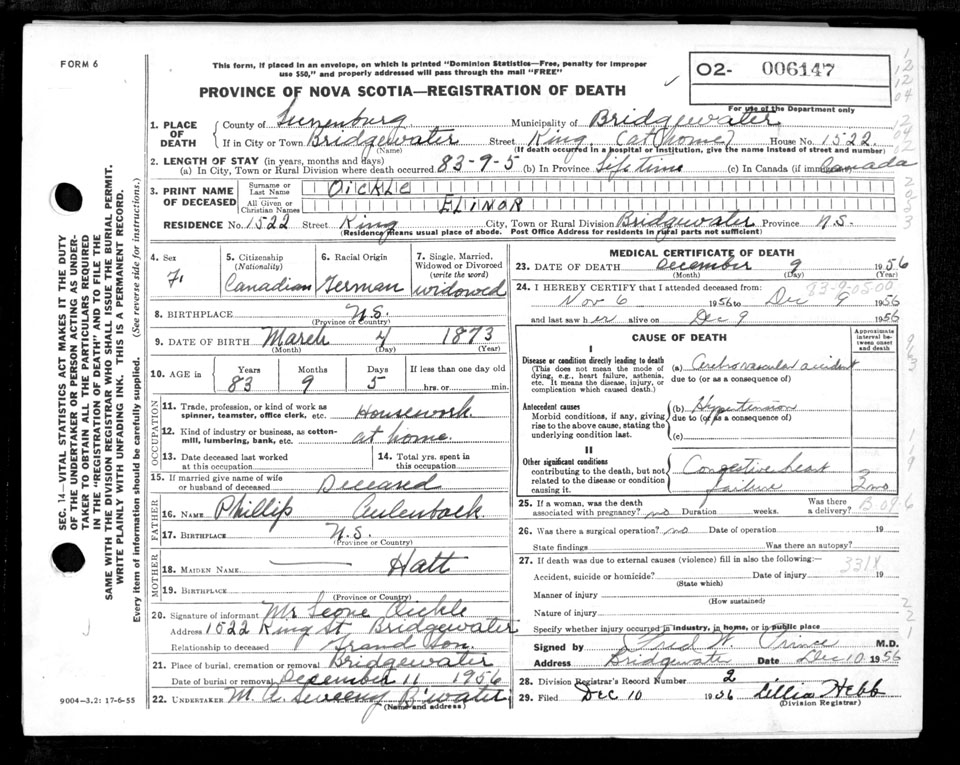 FORM 6
This form, if placed in an envelope, on which is printed "Dominion Statistics—Free, penalty for improper
use $50," and properly addressed will pass through the mail "FREE"
PROVINCE OF NOVA SCOTIA—REGISTRATION OF DEATH
02- 006147
For use of the Department only
1. PLACE OF DEATH
County of Lunenburg Municipality of Bridgewater
If in City or Town Bridgewater Street King (at home) House No. 1522
(Name) (If death occurred in a hospital or institution, give the name instead of street and number)
2. LENGTH OF STAY (in years, months and days)
(a) In City, Town or Rural Division where death occurred 83-9-5 (b) In Province Lifetime (c) In Canada (if immigrant) Canada
3. PRINT NAME OF DECEASED
Surname or Last Name OICKLE
All Given or Christian Names ELINOR
RESIDENCE No. 1522 Street King City, Town or Rural Division Bridgewater Province N.S.
(Residence means usual place of abode. Post Office Address for residents in rural parts not sufficient)
4. Sex F
5. Citizenship (Nationality) Canadian
6. Racial Origin German
7. Single, Married, Widowed or Divorced (write the word) widowed
8. BIRTHPLACE N.S.
(Province or Country)
9. DATE OF BIRTH March 4 1873
(Month) (Day) (Year)
10. AGE in Years 83 Months 9 Days 5 If less than one day old
hrs. or min.
OCCUPATION
11. Trade, profession, or kind of work as spinner, teamster, office clerk, etc. Housework
12. Kind of industry or business, as cotton-mill, lumbering, bank, etc. at home.
13. Date deceased last worked at this occupation
14. Total yrs. spent in this occupation
15. If married give name of wife or husband of deceased Deceased
FATHER
16. NAME Phillip Aulenback
17. BIRTHPLACE N.S.
(Province or Country)
MOTHER
18. MAIDEN NAME — Hatt
19. BIRTHPLACE
(Province or Country)
20. Signature of informant Mr Leone Oickle
Address 1522 King St. Bridgewater
Relationship to deceased Grand son.
21. Place of burial, cremation or removal Bridgewater
Date of burial or removal December 11 1956
22. UNDERTAKER M. A. Sweeny B'water
(Name and address)
MEDICAL CERTIFICATE OF DEATH
23. DATE OF DEATH December 9 1956
(Month) (Day) (Year)
24. I HEREBY CERTIFY that I attended deceased from: 83-9-05-00
Nov 6 1956 to Dec 9 1956
and last saw her alive on Dec 9 1956
CAUSE OF DEATH
Approximate interval between onset and death
I
Disease or condition directly leading to death
(This does not mean the mode of dying, e.g., heart failure, asthenia, etc. It means the disease, injury, or complication which caused death.)
(a) Cerebrovascular accident
due to (or as a consequence of)
Antecedent causes
Morbid conditions, if any, giving rise to the above cause, stating the underlying condition last.
(b) Hypertension
due to (or as a consequence of)
(c)
II
Other significant conditions
contributing to the death, but not related to the disease or condition causing it.
Congestive heart
failure 2 mo
25. If a woman, was the death associated with pregnancy? no Duration weeks. Was there a delivery?
26. Was there a surgical operation? no Date of operation 19
State findings Was there an autopsy?
27. If death was due to external causes (violence) fill in also the following:—
Accident, suicide or homicide? Date of injury 19
331X
(State which)
Manner of injury
(How sustained)
Nature of injury
Specify whether injury occurred in industry, in home, or in public place
Signed by Fred W. Prince M.D.
Address Bridgewater Date Dec 10 1956
28. Division Registrar's Record Number 2
29. Filed Dec 10 1956 Lillia Hebb
(Division Registrar)
SEC. 14—VITAL STATISTICS ACT MAKES IT THE DUTY
OF THE UNDERTAKER OR PERSON ACTING AS UNDER-
TAKER TO OBTAIN ALL THE PARTICULARS REQUIRED
IN THE "REGISTRATION OF DEATH" AND TO FILE THE
SAME WITH THE DIVISION REGISTRAR WHO SHALL ISSUE THE BURIAL PERMIT.
WRITE PLAINLY WITH UNFADING INK. THIS IS A PERMANENT RECORD.
Every item of information should be carefully supplied. (See reverse side for instructions.)
9004—3.2: 17-6-55